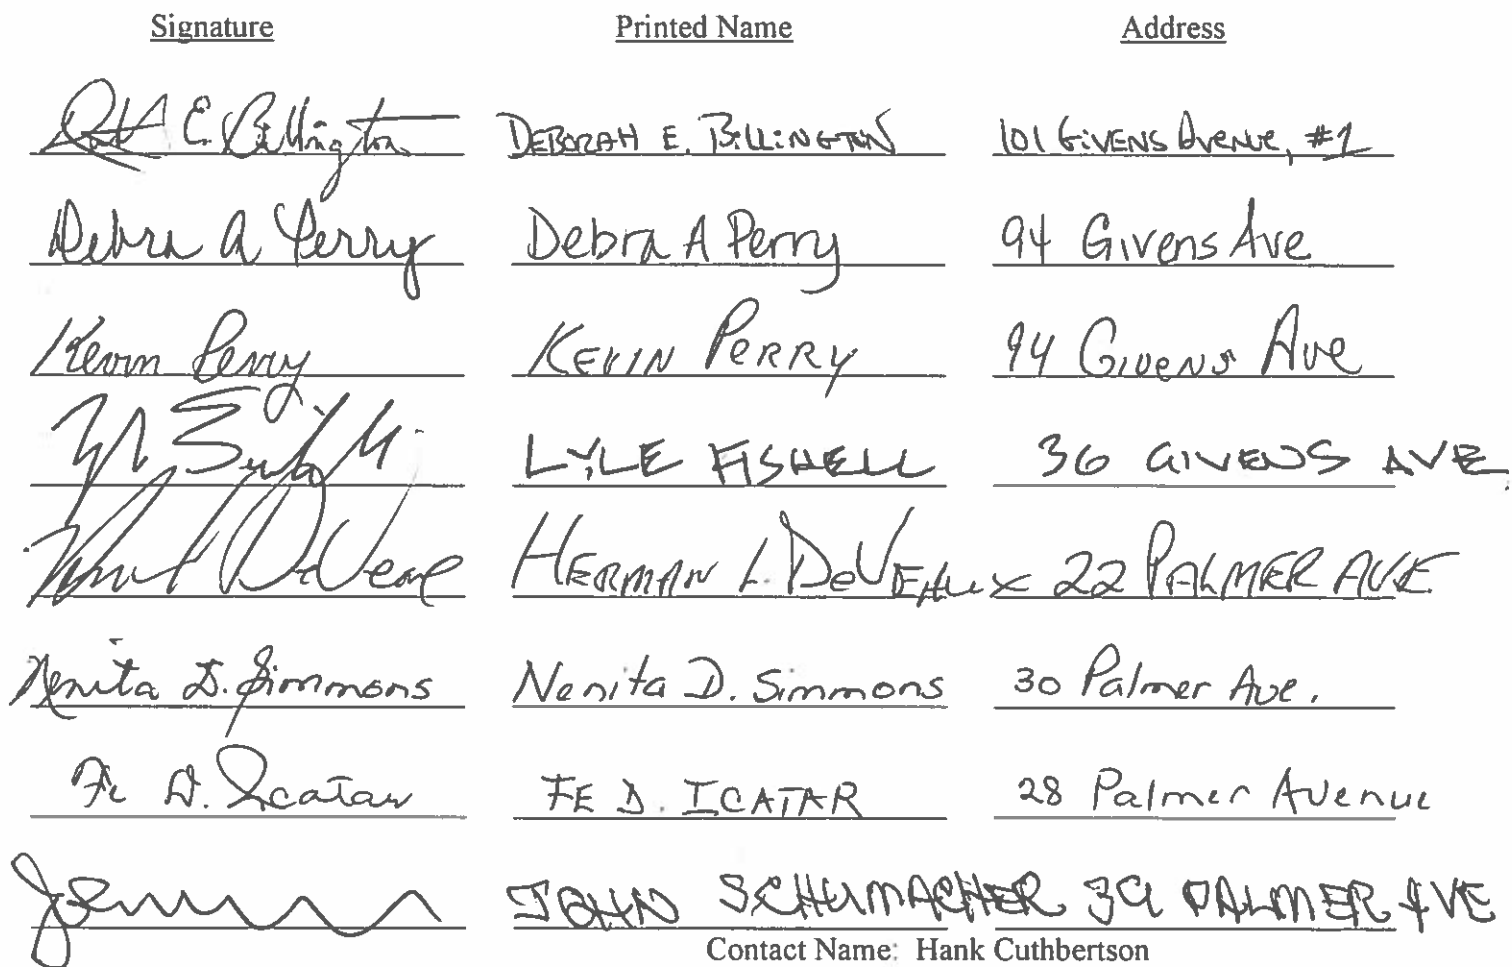 Signature Printed Name Address
E. Billington DEBORAH E. BILLINGTON 101 GIVENS Avenue, #1
Debra A Perry Debra A Perry 94 Givens Ave
Kevin Perry KEVIN PERRY 94 GIVENS Ave
LYLE FISHELL 36 GIVENS AVE.
DeVeaux HERMAN L. DeVEAUX 22 PALMER AVE
Nenita D. Simmons Nenita D. Simmons 30 Palmer Ave.
Fe D. Icatar FE D. ICATAR 28 Palmer Avenue
JOHN SCHUMACHER 39 PALMER AVE
Contact Name: Hank Cuthbertson